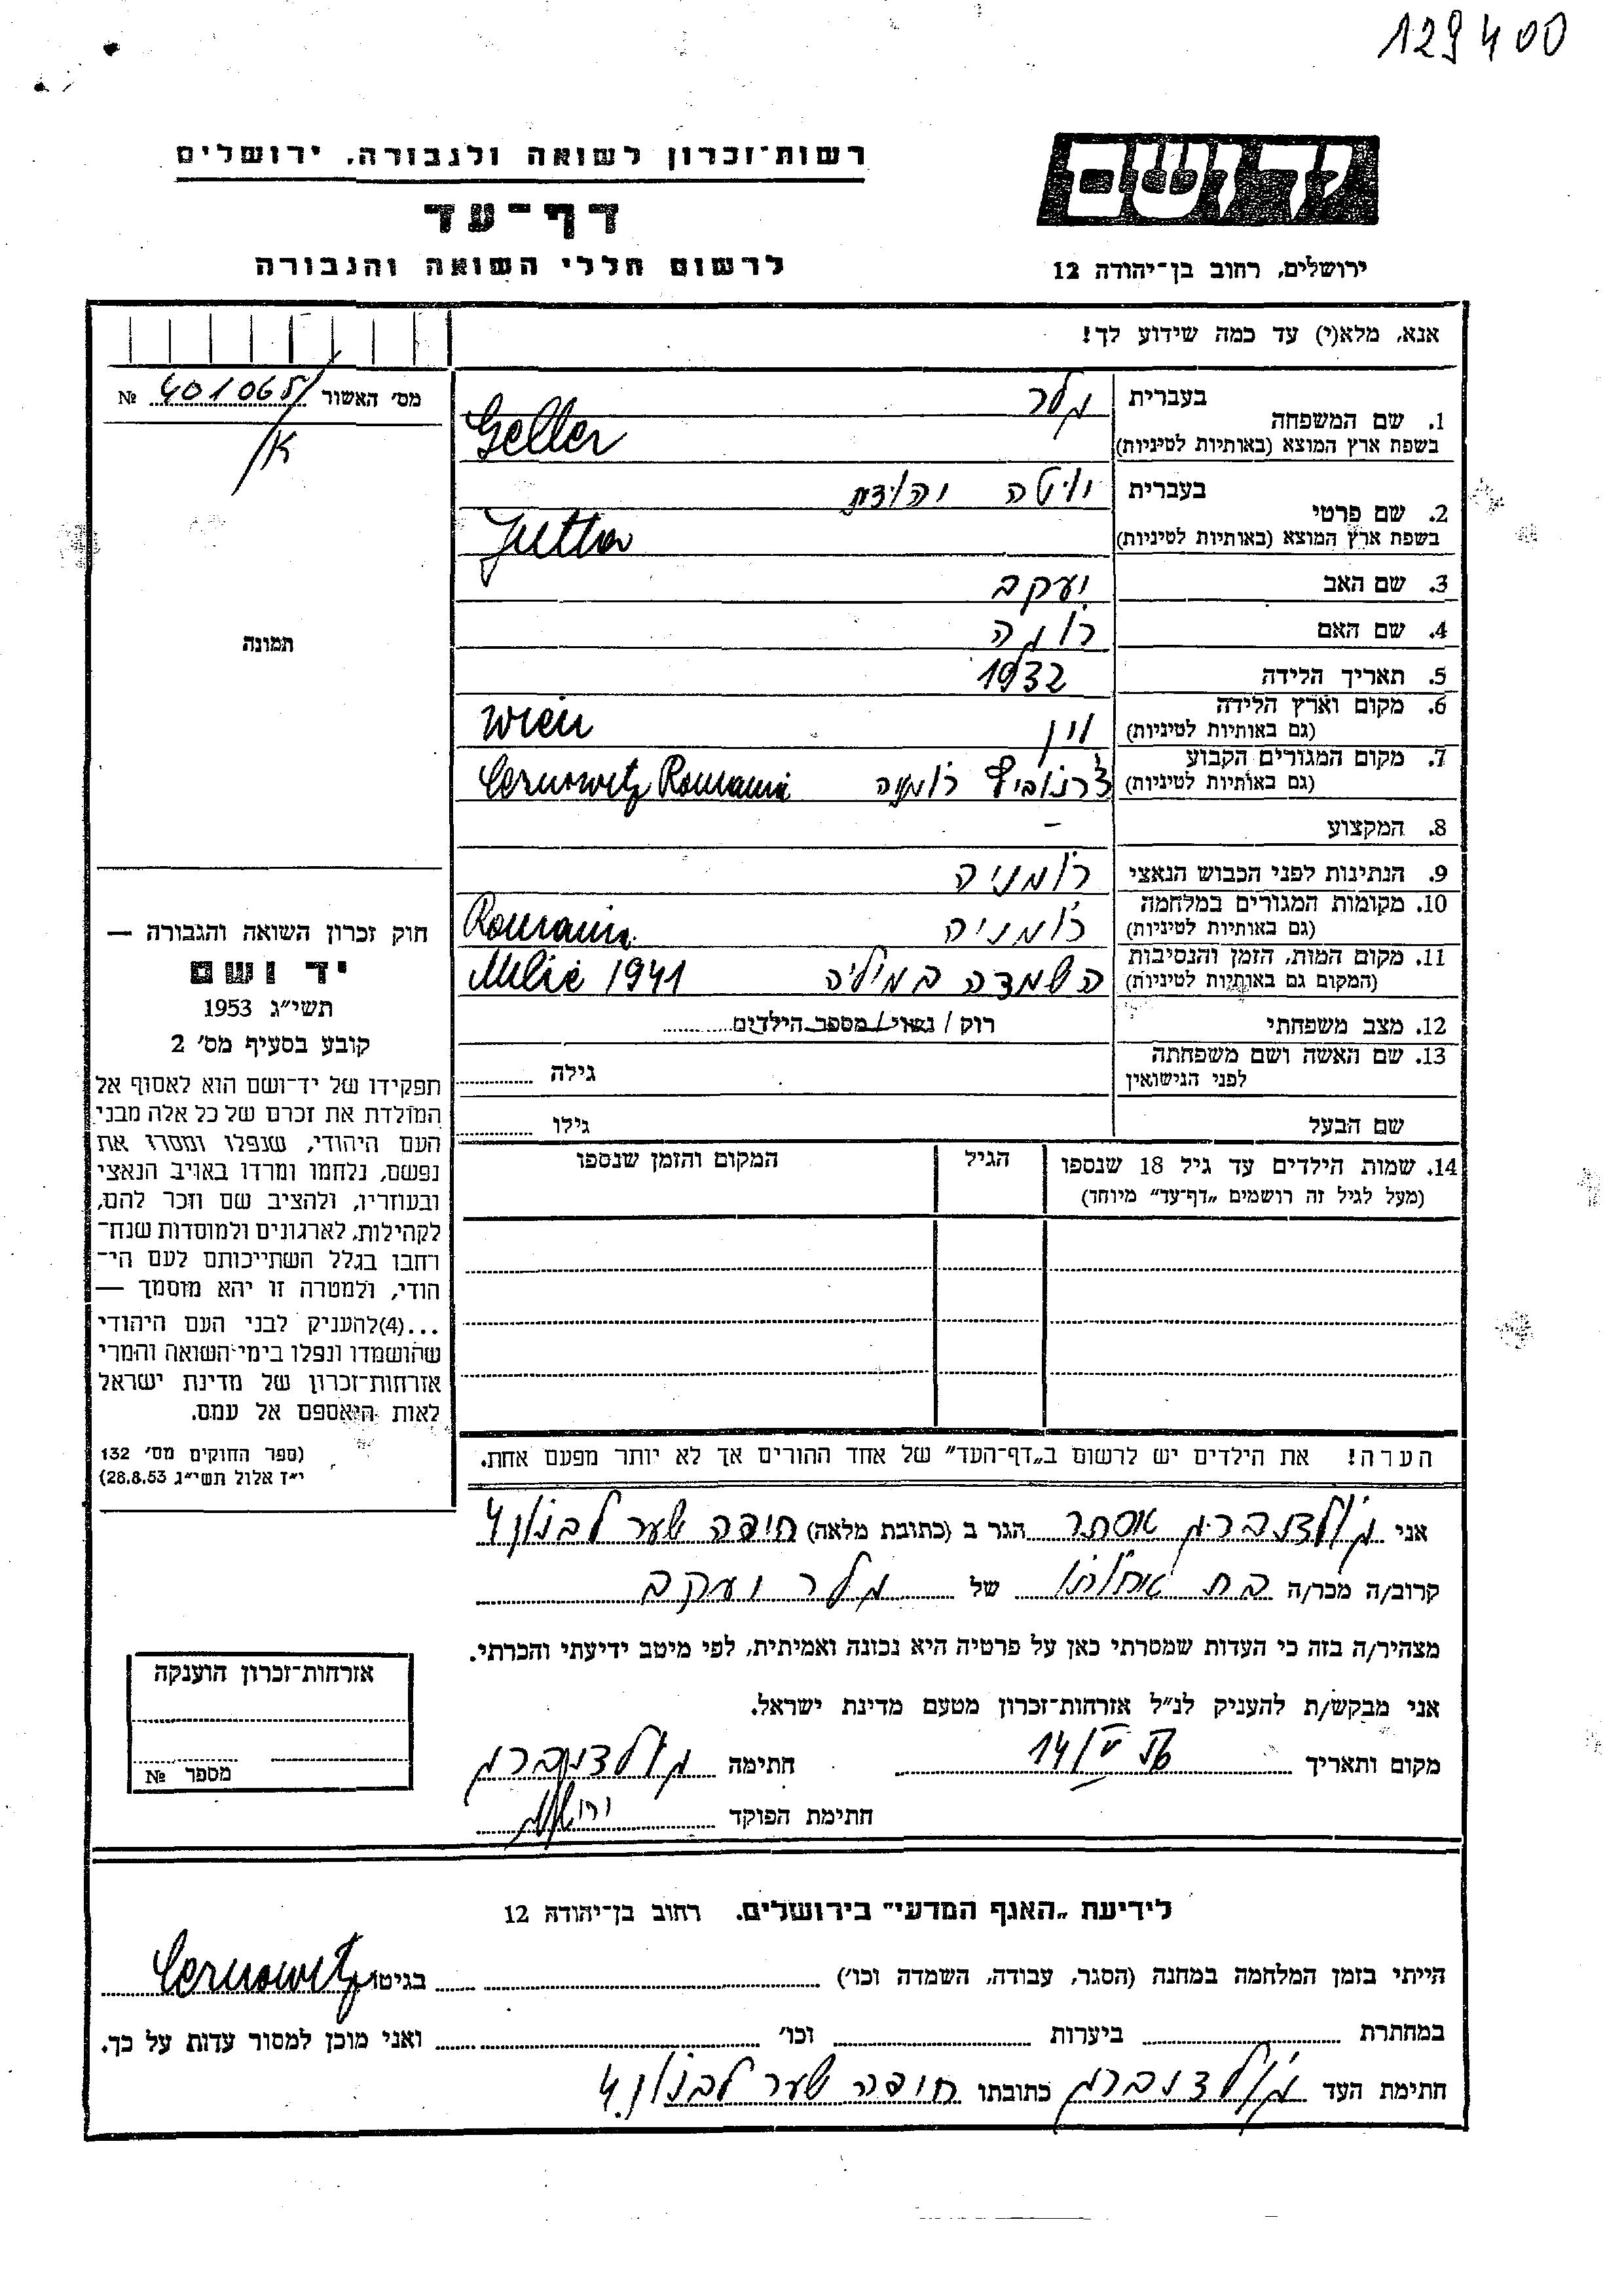 129400
רשות־זכרון לשואה ולגבורה, ירושלים
יד ושם
דף־עד
לרשום חללי השואה והגבורה
ירושלים, רחוב בן־יהודה 12
אנא, מלא(י) עד כמה שידוע לך!
מס' האשור 401065 №
1. שם המשפחה
בעברית גלר
בשפת ארץ המוצא (באותיות לטיניות) Geller
2. שם פרטי
בעברית יוטה יהודית
בשפת ארץ המוצא (באותיות לטיניות) Jutta
3. שם האב יעקב
4. שם האם רוזה
5. תאריך הלידה 1932
6. מקום וארץ הלידה וין Wien
(גם באותיות לטיניות)
7. מקום המגורים הקבוע צ'רנוביץ רומניה Cernowitz Romania
(גם באותיות לטיניות)
8. המקצוע –
9. הנתינות לפני הכבוש הנאצי רומניה
10. מקומות המגורים במלחמה רומניה Romania
(גם באותיות לטיניות)
11. מקום המות, הזמן והנסיבות השמדה במיליה Milie 1941
(המקום גם באותיות לטיניות)
12. מצב משפחתי רוק / נשוי / מספר הילדים
13. שם האשה ושם משפחתה גילה
לפני הנישואין
שם הבעל גילו
14. שמות הילדים עד גיל 18 שנספו הגיל המקום והזמן שנספו
(מעל לגיל זה רושמים „דף־עד” מיוחד)
תמונה
חוק זכרון השואה והגבורה —
יד ושם
תשי״ג 1953
קובע בסעיף מס' 2
תפקידו של יד־ושם הוא לאסוף אל
המולדת את זכרם של כל אלה מבני
העם היהודי, שנפלו ומסרו את
נפשם, נלחמו ומרדו באויב הנאצי
ובעוזריו, ולהציב שם וזכר להם,
לקהילות, לארגונים ולמוסדות שנח־
רחבו בגלל השתייכותם לעם הי־
הודי, ולמטרה זו יהא מוסמך —
...(4)להעניק לבני העם היהודי
שהושמדו ונפלו בימי השואה והמרי
אזרחות־זכרון של מדינת ישראל
לאות היאספם אל עמם.
(ספר החוקים מס' 132
י״ז אלול תשי״ג 28.8.53)
הערה! את הילדים יש לרשום ב„דף־העד” של אחד ההורים אך לא יותר מפעם אחת.
אני גולדנברג אסתר הגר ב (כתובת מלאה) חיפה שער לבנון 4
קרוב/ה מכר/ה בת אחותו של גלר יעקב
מצהיר/ה בזה כי העדות שמסרתי כאן על פרטיה היא נכונה ואמיתית, לפי מיטב ידיעתי והכרתי.
אני מבקש/ת להעניק לנ״ל אזרחות־זכרון מטעם מדינת ישראל.
מקום ותאריך 14/V 56 חתימה גולדנברג
חתימת הפוקד
אזרחות־זכרון הוענקה
מספר №
לידיעת „האגף המדעי” בירושלים. רחוב בן־יהודה 12
הייתי בזמן המלחמה במחנה (הסגר, עבודה, השמדה וכו') בגיטו Cernowitz
במחתרת ביערות וכו' ואני מוכן למסור עדות על כך.
חתימת העד גולדנברג כתובתו חיפה שער לבנון 4